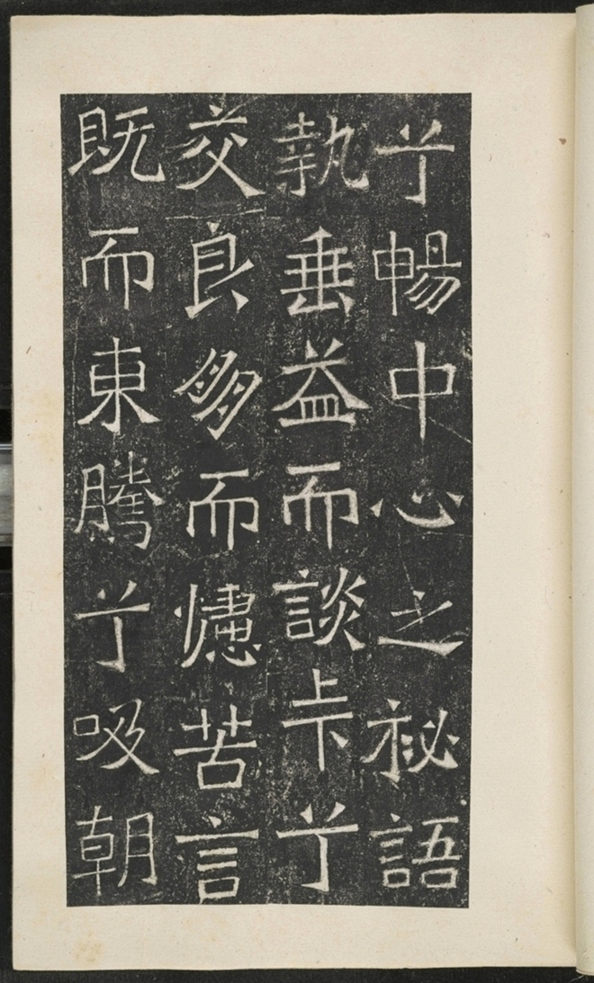 兮暢中心之祕語
執垂益而談卡兮
交良朋而攄苦言
既而東騰兮吸朝